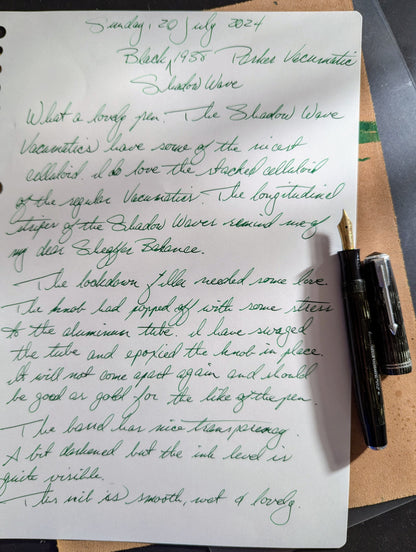 Sunday, 20 July 2024
Black, 1938 Parker Vacumatic
Shadow Wave
What a lovely pen. The Shadow Wave
Vacumatics have some of the nicest
celluloid. I do love the stacked celluloid
of the regular Vacumatics. The longitudinal
stripes of the Shadow Waves remind me of
my dear Sheaffer Balance.
The lockdown filler needed some love.
The knob had popped off with some stress
to the aluminum tube. I have swaged
the tube and apoxied the knob in place.
It will not come apart again and should
be good as gold for the life of the pen.
The barrel has nice transparency.
A bit darkened but the ink level is
quite visible.
This nib is smooth, wet & lovely.